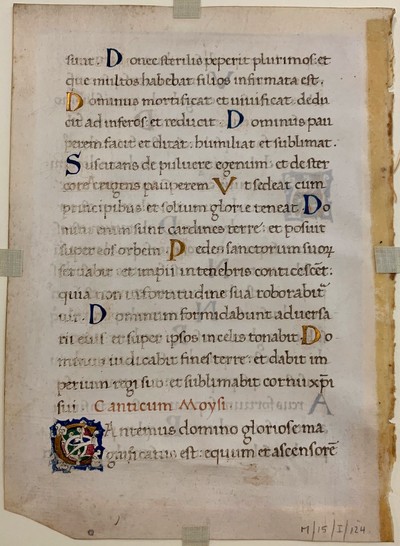 sunt. Donec sterilis peperit plurimos: et
que multos habebat filios infirmata est.
Dominus mortificat et uiuificat: dedu
cit ad inferos et reducit. Dominus pau
perem facit et ditat: humiliat et sublimat.
Suscitans de puluere egenum: et de ster
core erigens pauperem. Ut sedeat cum
principibus: et solium glorie teneat. Do
mini enim sunt cardines terre: et posuit
super eos orbem. Pedes sanctorum suoꝝ
seruabit: et impii in tenebris conticescẽt:
quia non in fortitudine sua roborabit̃
uir. Dominum formidabunt aduersa
rii eius: et super ipsos in celis tonabit. Do
minus iudicabit fines terre: et dabit im
perium regi suo: et sublimabit cornu xp̃i
sui. Canticum Moysi
Cantemus domino gloriose: ma
gnificatus est: equum et ascensorẽ
M/15/I/124